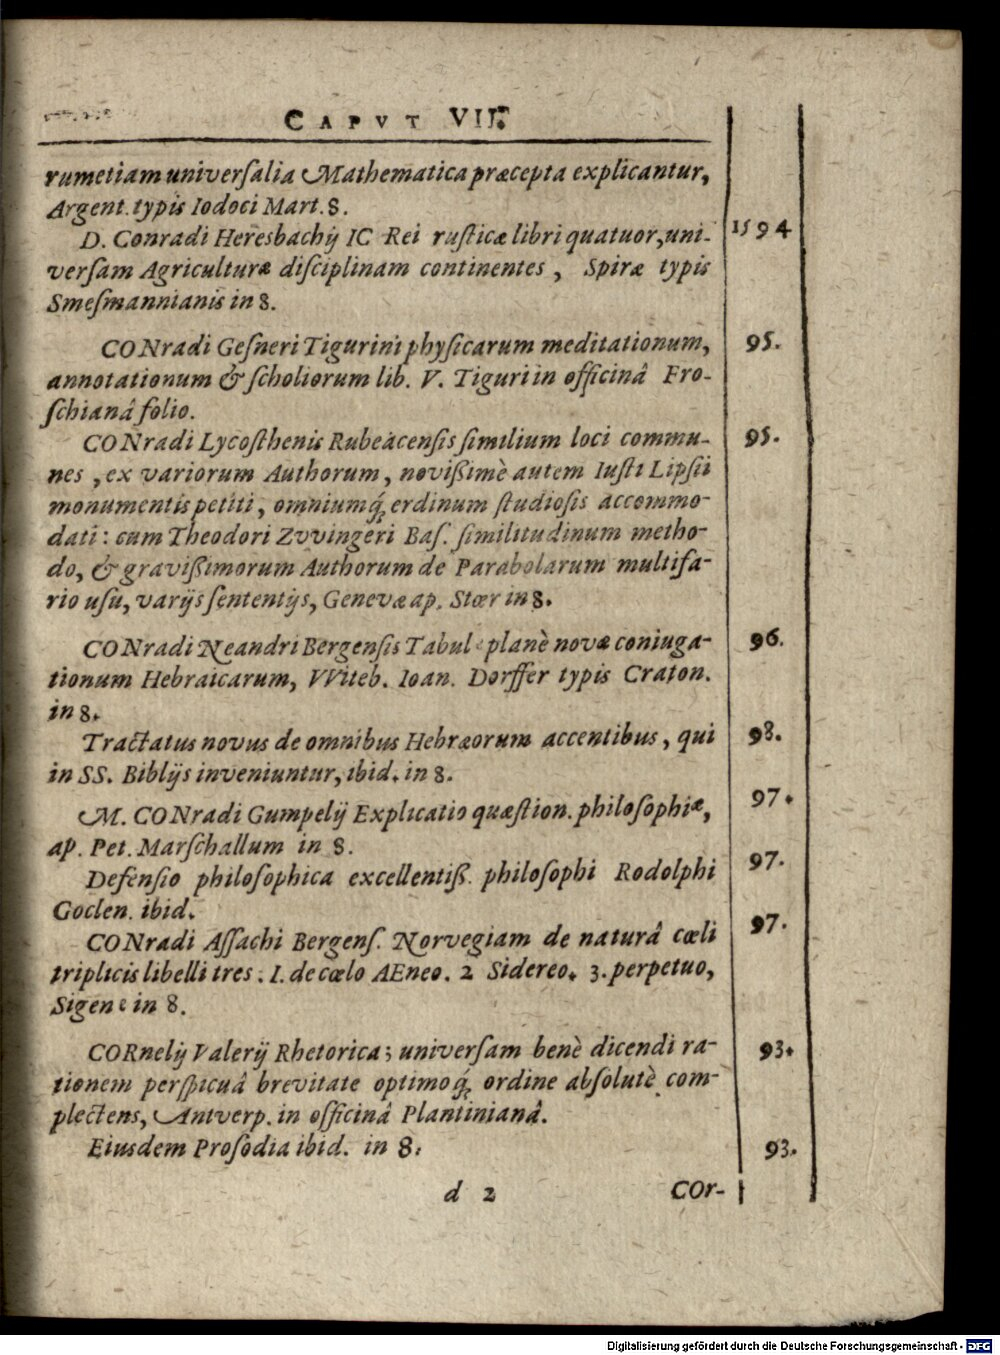 CAPVT VII.
rumetiam universalia Mathematica præcepta explicantur,
Argent. typis Iodoci Mart. 8.
D. Conradi Heresbachij IC Rei rusticæ libri quatuor, uni- 1594
versam Agriculturæ disciplinam continentes, Spiræ typis
Smesmannianis in 8.
CONradi Gesneri Tigurini physicarum meditationum, 95.
annotationum & scholiorum lib. V. Tiguri in officinâ Fro-
schianâ folio.
CONradi Lycosthenis Rubeacensis similium loci commu- 95.
nes, ex variorum Authorum, novißimè autem Iusti Lipsii
monumentis petiti, omniumq́; erdinum studiosis accommo-
dati: cum Theodori Zvvingeri Bas. similitudinum metho-
do, & gravißimorum Authorum de Parabolarum multifa-
rio usu, varijs sententijs, Genevæ ap. Stær in 8.
CONradi Neandri Bergensis Tabulæ planè novæ coniuga- 96.
tionum Hebraicarum, VViteb. Ioan. Dorffer typis Craton.
in 8.
Tractatus novus de omnibus Hebræorum accentibus, qui 98.
in SS. Biblijs inveniuntur, ibid. in 8.
M. CONradi Gumpelij Explicatio quæstion. philosophiæ, 97.
ap. Pet. Marschallum in 8.
Defensio philosophica excellentiß. philosophi Rodolphi 97.
Goclen. ibid.
CONradi Assachi Bergens. Norvegiam de naturâ cæli 97.
triplicis libelli tres. I. de cælo AEneo. 2 Sidereo. 3. perpetuo,
Sigenæ in 8.
CORnelij Valerij Rhetorica; universam benè dicendi ra- 93.
tionem perspicuâ brevitate optimoq́; ordine absolutè com-
plectens, Antverp. in officinâ Plantinianâ.
Eiusdem Prosodia ibid. in 8. 93.
d 2 COr-
Digitalisierung gefördert durch die Deutsche Forschungsgemeinschaft - DFG